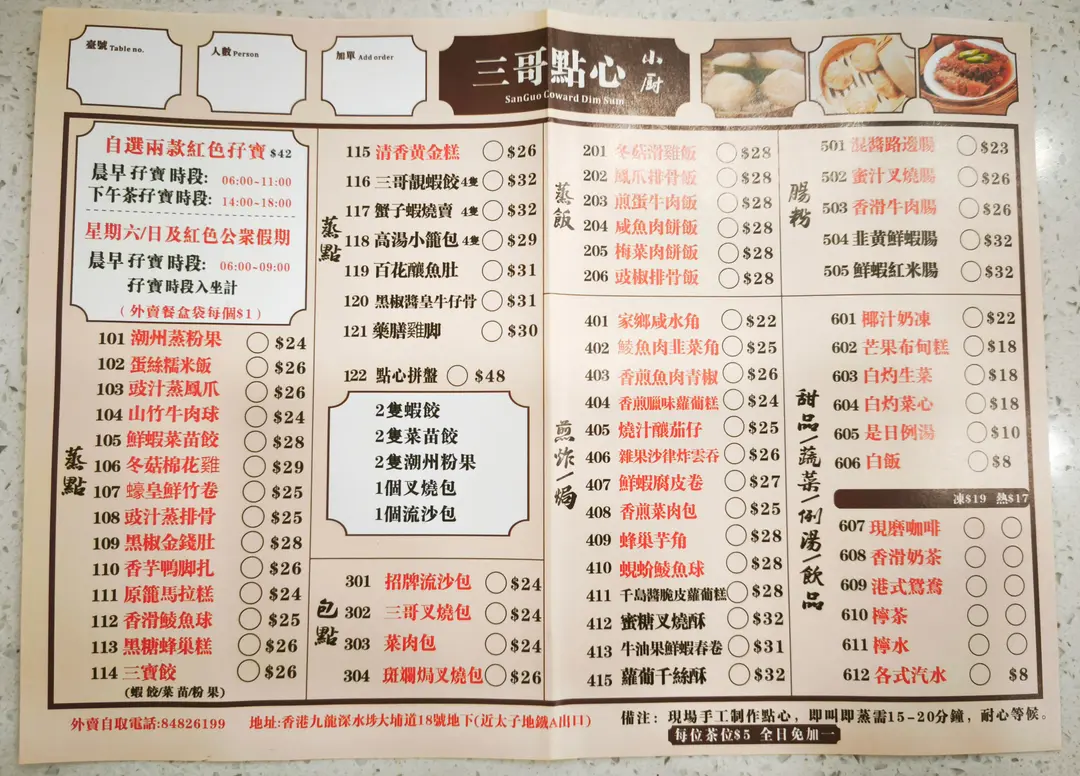 臺號 Table no.
人數 Person
加單 Add order
三哥點心 小廚
SanGuo Coward Dim Sum
自選兩款紅色孖寶 $42
晨早孖寶時段: 06:00~11:00
下午茶孖寶時段: 14:00~18:00
星期六/日及紅色公衆假期
晨早孖寶時段: 06:00~09:00
孖寶時段入坐計
(外賣餐盒袋每個$1)
蒸點
101 潮州蒸粉果 $24
102 蛋絲糯米飯 $26
103 豉汁蒸鳳爪 $26
104 山竹牛肉球 $24
105 鮮蝦菜苗餃 $28
106 冬菇棉花雞 $29
107 蠔皇鮮竹卷 $25
108 豉汁蒸排骨 $25
109 黑椒金錢肚 $28
110 香芋鴨脚扎 $26
111 原籠馬拉糕 $24
112 香滑鯪魚球 $25
113 黑糖蜂巢糕 $26
114 三寶餃 $26
(蝦餃/菜苗/粉果)
蒸點
115 清香黄金糕 $26
116 三哥靚蝦餃4隻 $32
117 蟹子蝦燒賣 4隻 $32
118 高湯小籠包 4隻 $29
119 百花釀魚肚 $31
120 黑椒醬皇牛仔骨 $31
121 藥膳雞脚 $30
122 點心拼盤 $48
2隻蝦餃
2隻菜苗餃
2隻潮州粉果
1個叉燒包
1個流沙包
包點
301 招牌流沙包 $24
302 三哥叉燒包 $24
303 菜肉包 $24
304 斑斕焗叉燒包 $26
蒸飯
201 冬菇滑雞飯 $28
202 鳳爪排骨飯 $28
203 煎蛋牛肉飯 $28
204 咸魚肉餅飯 $28
205 梅菜肉餅飯 $28
206 豉椒排骨飯 $28
煎炸/焗
401 家鄉咸水角 $22
402 鯪魚肉韭菜角 $25
403 香煎魚肉青椒 $26
404 香煎臘味蘿蔔糕 $24
405 燒汁釀茄仔 $25
406 雜果沙律炸雲吞 $26
407 鮮蝦腐皮卷 $27
408 香煎菜肉包 $25
409 蜂巢芋角 $28
410 蜆蚧鯪魚球 $28
411 千島醬脆皮蘿蔔糕 $28
412 蜜糖叉燒酥 $32
413 牛油果鮮蝦春卷 $31
415 蘿蔔千絲酥 $32
腸粉
501 混醬路邊腸 $23
502 蜜汁叉燒腸 $26
503 香滑牛肉腸 $26
504 韭黄鮮蝦腸 $32
505 鮮蝦紅米腸 $32
甜品/蔬菜/例湯/飲品
601 椰汁奶凍 $22
602 芒果布甸糕 $18
603 白灼生菜 $18
604 白灼菜心 $18
605 是日例湯 $10
606 白飯 $8
凍$19 熱$17
607 現磨咖啡
608 香滑奶茶
609 港式鴛鴦
610 檸茶
611 檸水
612 各式汽水 $8
外賣自取電話:84826199 地址:香港九龍深水埗大埔道18號地下(近太子地鐵A出口)
備注: 現場手工制作點心，即叫即蒸需15-20分鐘，耐心等候。
每位茶位$5 全日免加一